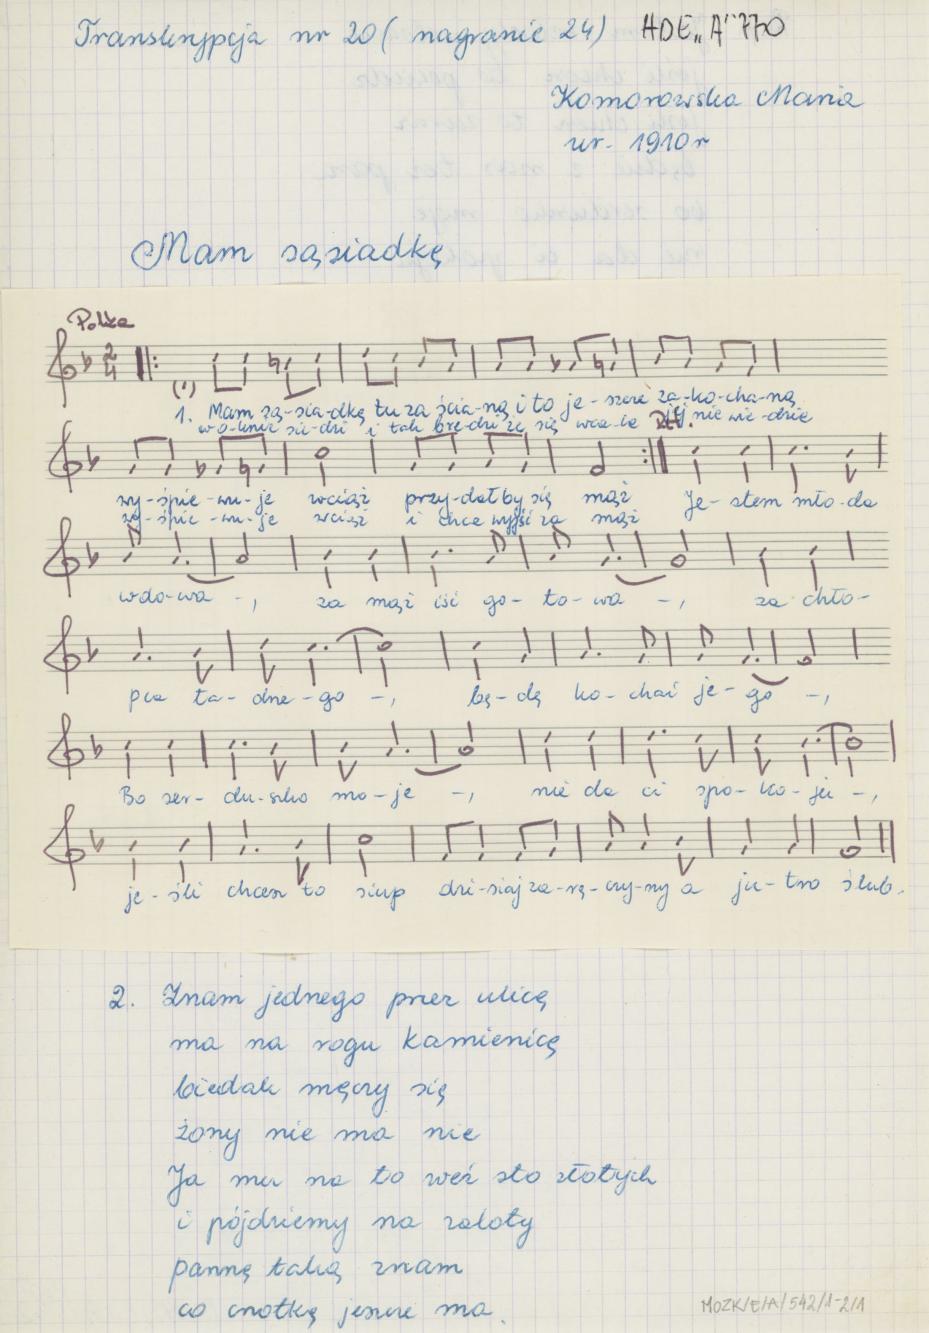 Transkrypcja nr 20 (nagranie 24) HDE „A” 770
Komorowska Maria
ur. 1910 r
Mam sąsiadkę
Polka
2
4
1. Mam są-sia-dkę tu za ścia-ną i to je-szcze za-ko-cha-ną
w o-knie sie-dzi i tak bie-dzi że się wca-le jej nie wie-dzie
Ref.
wy-śpie-wu-je wciąż przy-dał by się mąż Je-stem mło-da
wy-śpie-wu-je wciąż i chce wyjść za mąż
wdo-wa -, za mąż iść go-to-wa -, za chło-
pca ła-dne-go -, bę-dę ko-chać je-go -,
Bo ser-du-szko mo-je -, nie da ci spo-ko-ju -,
je-śli chcesz to siup dzi-siaj za-rę-czy-ny a ju-tro ślub.
2. Znam jednego przez ulicę
ma na rogu kamienicę
biedak męczy się
żony nie ma nie
Ja mu na to weź sto złotych
i pójdziemy na zaloty
pannę taką znam
co cnotkę jeszcze ma.
MOZK/E/A/542/1-2/1